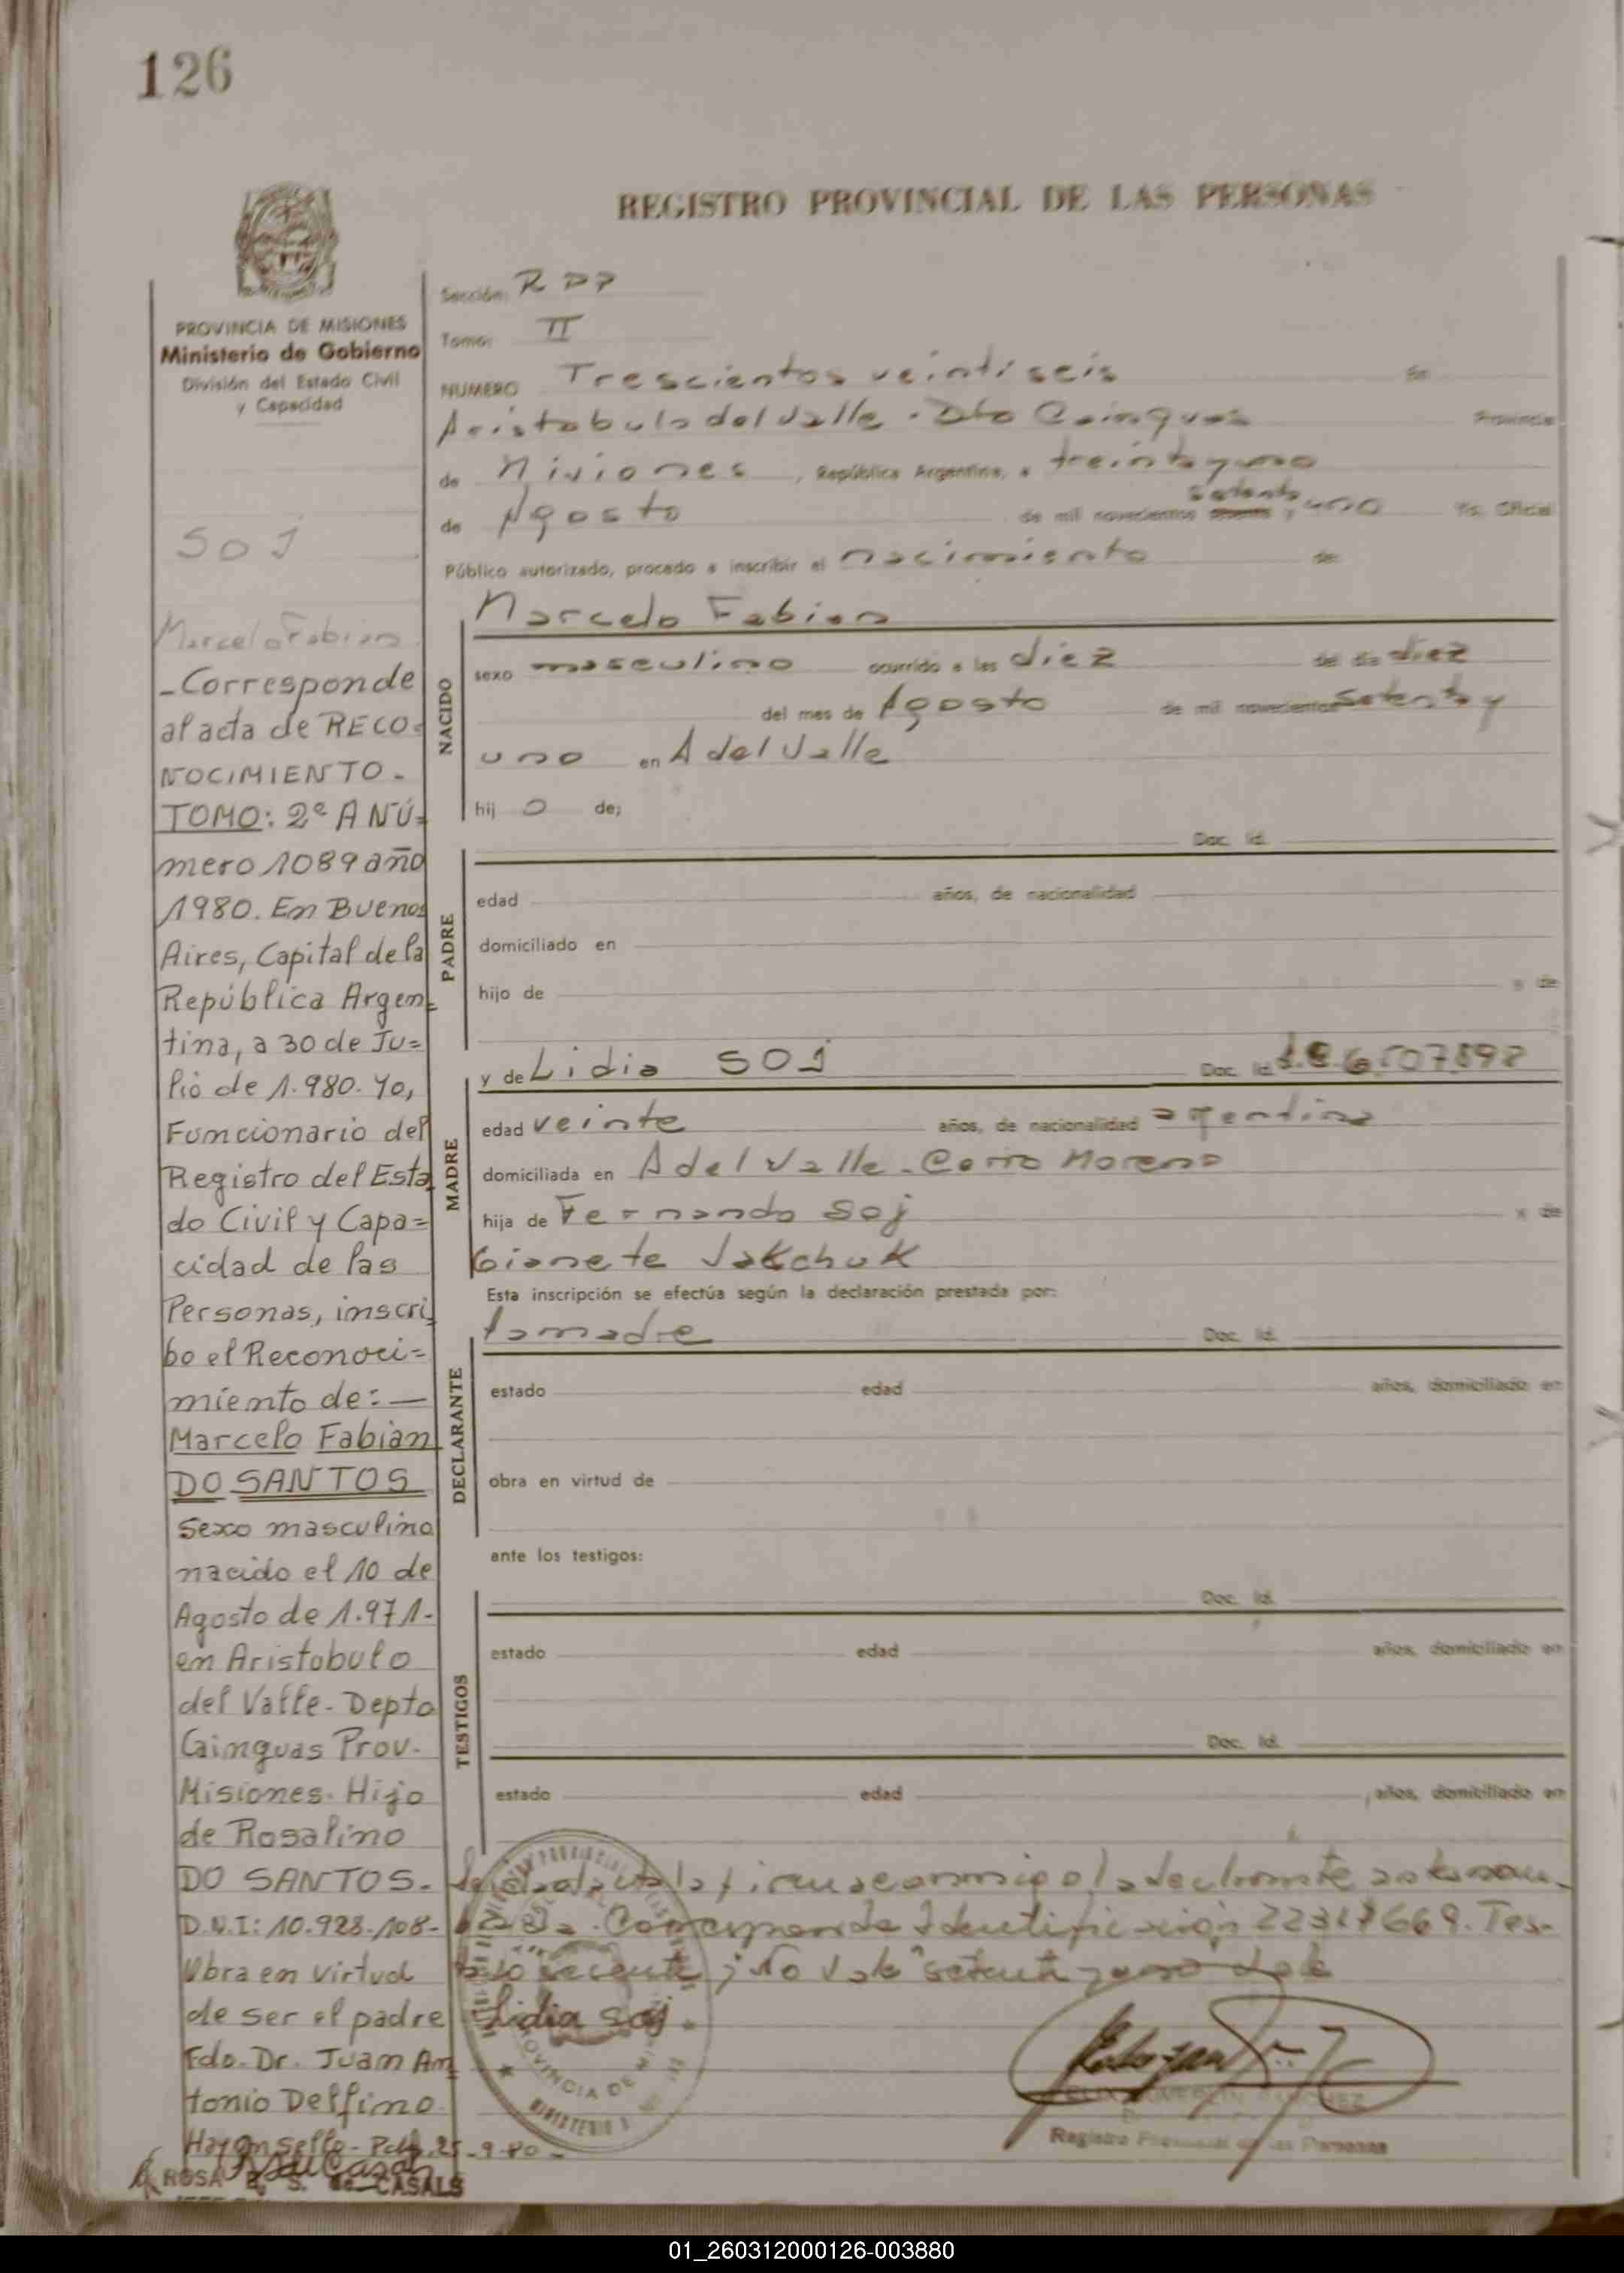 126
REGISTRO PROVINCIAL DE LAS PERSONAS
PROVINCIA DE MISIONES
Ministerio de Gobierno
División del Estado Civil
y Capacidad
SOJ
Marcelo Fabian
-Corresponde
al acta de RECO=
NOCIMIENTO-
TOMO: 2º A NÚ=
mero 1089 año
1980. En Buenos
Aires, Capital de la
República Argen=
tina, a 30 de Ju=
lio de 1.980. Yo,
Funcionario del
Registro del Esta
do Civil y Capa=
cidad de las
Personas, inscri
bo el Reconoci=
miento de: —
Marcelo Fabian
DO SANTOS
Sexo masculino
nacido el 10 de
Agosto de 1.971-
en Aristobulo
del Valle- Depto
Cainguas Prov.
Misiones. Hijo
de Rosalino
DO SANTOS.-
D.N.I: 10.928.108-
Obra en virtud
de ser el padre
Fdo. Dr. Juan An
tonio Delfino.
Hay un sello- 25-9-80-
ROSA E. S. de CASALS
Sección: R P P
Tomo: II
NUMERO Trescientos veintiseis En
Aristobulo del Valle - Dto Cainguas Provincia
de Misiones, República Argentina, a treinta y uno
setenta
de Agosto de mil novecientos y uno Yo, Oficial
Público autorizado, procedo a inscribir el nacimiento de
Marcelo Fabian
NACIDO
sexo masculino ocurrido a las diez del día diez
del mes de Agosto de mil novecientos setenta y
uno en A del Valle
hij o de;
Doc. Id.
PADRE
edad años, de nacionalidad
domiciliado en
hijo de y de
y de Lidia SOJ Doc. Id. 6.507.892
MADRE
edad veinte años, de nacionalidad argentina
domiciliada en A del Valle - Cerro Moreno
hija de Fernando Soj y de
Jakchuk
Esta inscripción se efectúa según la declaración prestada por:
la madre Doc. Id.
DECLARANTE
estado edad años, domiciliado en
obra en virtud de
ante los testigos:
Doc. Id.
TESTIGOS
estado edad años, domiciliado en
Doc. Id.
estado edad años, domiciliado en
Leida el acta la firma conmigo la declarante
Corresponde Identificación 22317669. Tes-
tado sesenta; No Vale "setenta y uno" Vale
Lidia Soj
PROVINCIA DE
MINISTERIO
Registro Provincial de las Personas
01_260312000126-003880